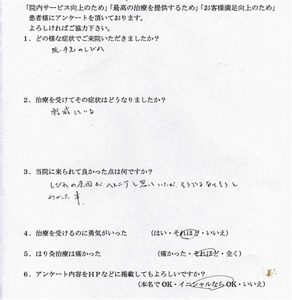 「院内サービス向上のため」「最高の治療を提供するため」「お客様満足向上のため」
患者様にアンケートを頂いております。
よろしければご協力下さい。
1．どの様な症状でご来院いただきましたか？
のしびれ
2．治療を受けてその症状はどうなりましたか？
軽減している
3．当院に来られて良かった点は何ですか？
しびれの原因がヘルニアと思っていたが、そうではないと
わかった事
4．治療を受けるのに勇気がいった （はい・それほど・いいえ）
5．はり灸治療は痛かった （痛かった・それほど・全く）
6．アンケート内容をHPなどに掲載してもよろしいですか？
（本名でOK・イニシャルならOK・いいえ）